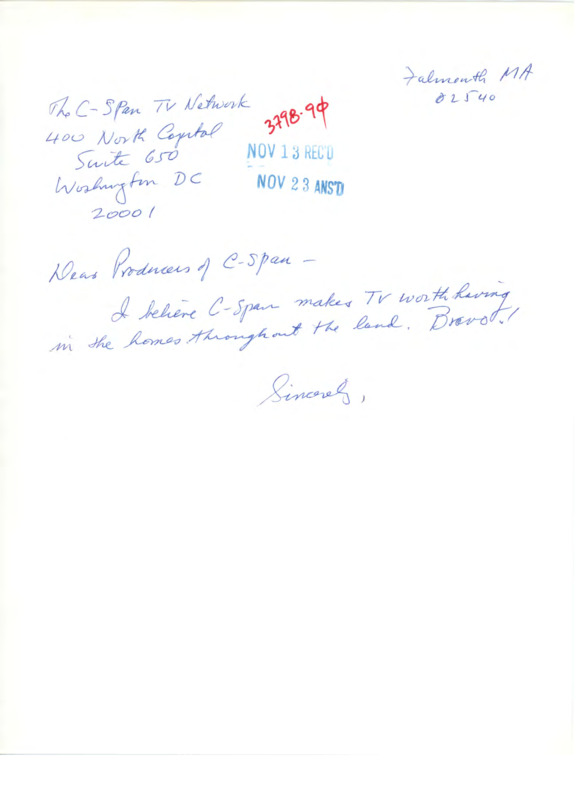 Falmouth MA
02540
The C-SPan TV Network
400 North Capital
Suite 650
Washington DC
20001
3798-90
NOV 13 REC'D
NOV 23 ANS'D
Dear Producers of C-Span –
I believe C-Span makes TV worth having
in the homes throughout the land. Bravo!!
Sincerely,